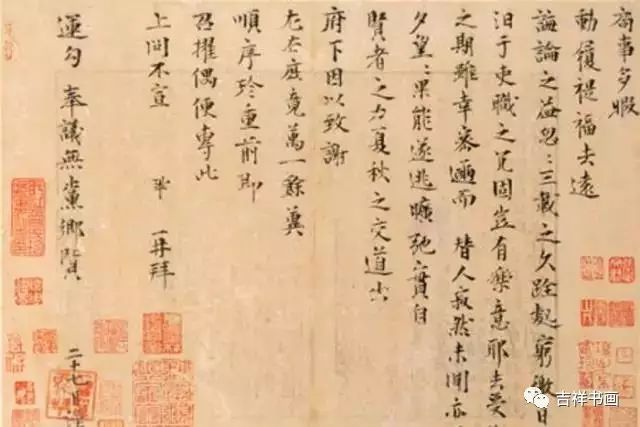 局事多暇
動履禔福去遠
誨論之益忽〻三載之久跧處窮徼日
汩于吏職之冗固豈有樂意耶去受
之期雖幸密邇而 替人寂然未聞亦
夕望〻果能遂逃曠弛實自
賢者之力夏秋之交道出
府下因以致謝
左右庶竟萬一餘冀
順序珍重前即
召擢偶便專此
上問不宣 鞏 再拜
運勾 奉議無黨鄉賢
二十七日
吉祥书画